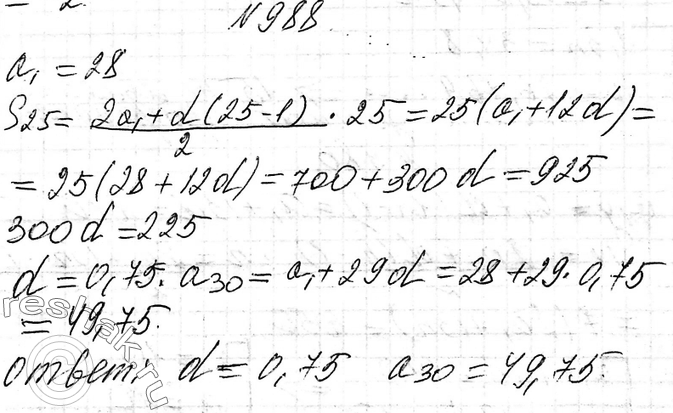 – 2.
N988
a₁ = 28
S₂₅ = (2a₁ + d(25-1))/2 · 25 = 25(a₁ + 12d) =
= 25(28 + 12d) = 700 + 300d = 925
300d = 225
d = 0,75. a₃₀ = a₁ + 29d = 28 + 29 · 0,75
= 49,75.
ответ: d = 0,75 a₃₀ = 49,75.
reshak.ru